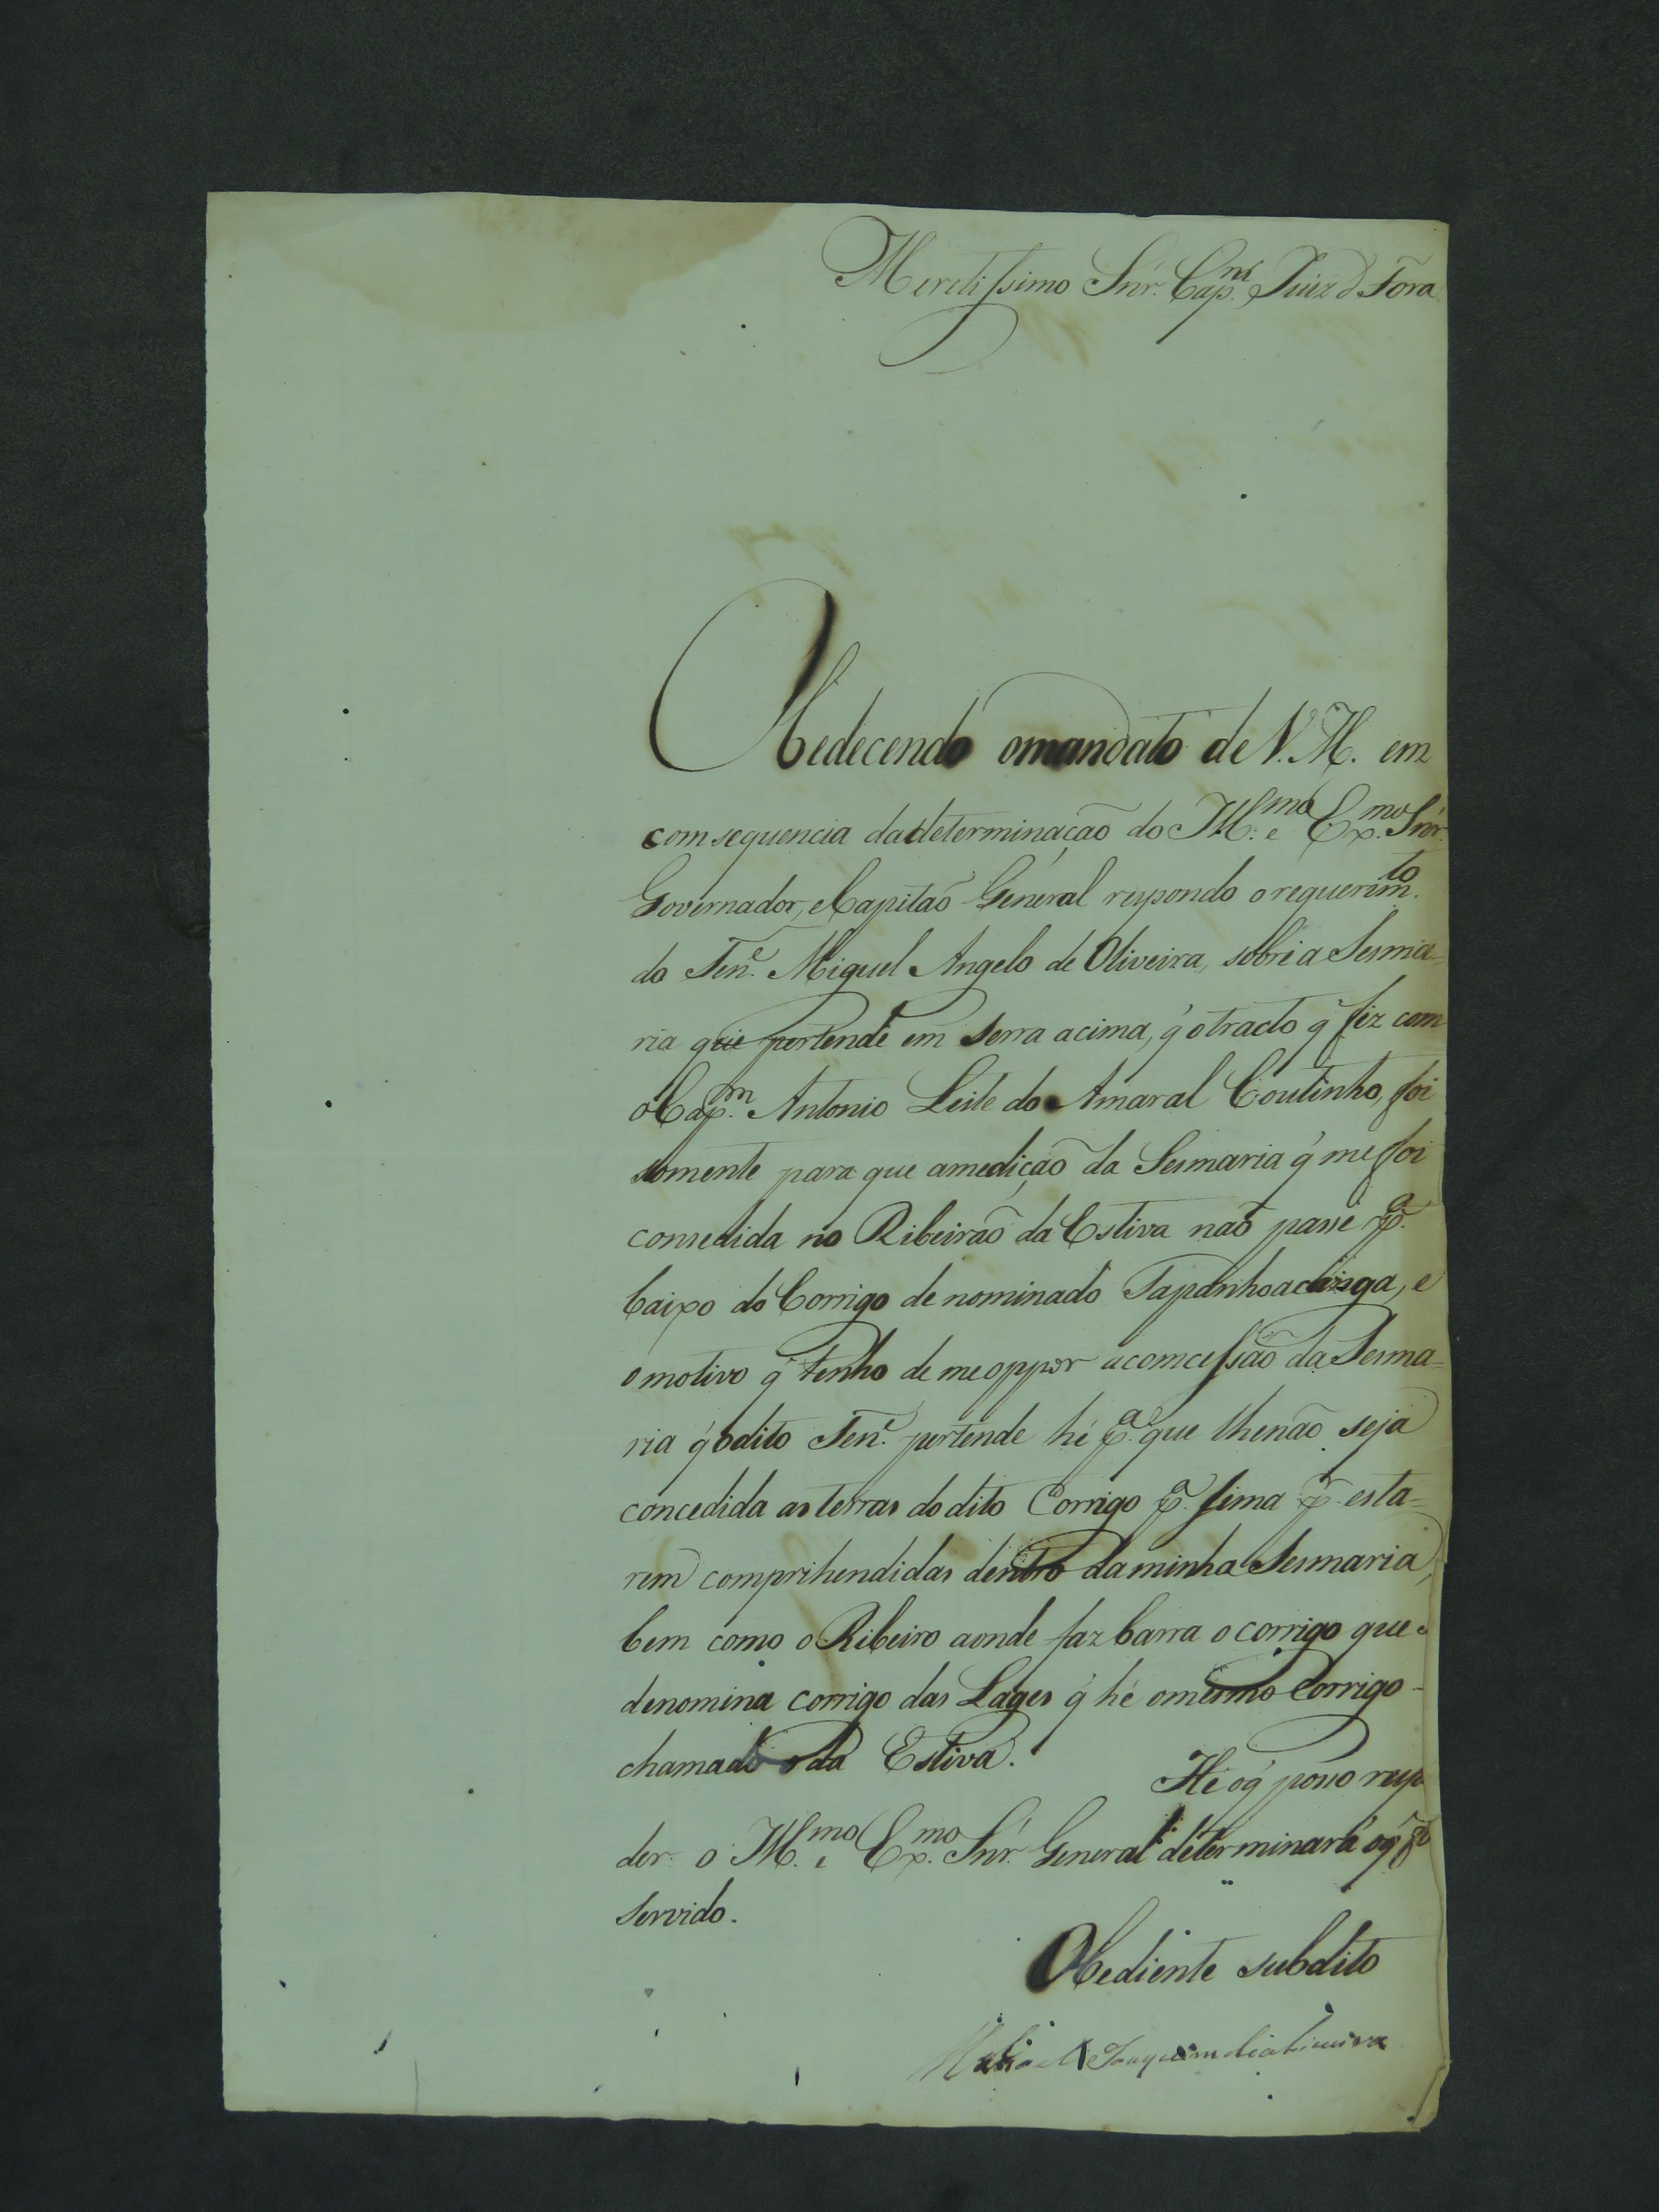 Meretissimo Snr. Cap.m Juiz d Fora
Obedecendo omandato de V. M. em
comsequencia dadeterminação do Ill.mo e Ex.mo Snr.
Governador, eCapitaõ General respondo o requerim.to
do Ten.e Miguel Angelo de Oliveira, sobre a Sesma-
ria que pertende em serra acima, q̃ otracto q̃ fiz com
oCap.m Antonio Leite do Amaral Coutinho, foi
somente para que amedição da Sesmaria q̃ me foi
consedida no Ribeiraõ da Estiva naõ passe p.a
baixo do Corrigo de nominado Tapanhoacanga, e
omotivo q̃ tenho de me oppor acomcessaõ da Sesma=
ria q̃ odito Ten.e pertende hé p.a que lhenaõ seja
concedida as terras do dito Corrigo p.a sima p.r esta=
rem comprihendidas dentro daminha Sesmaria,
bem como o Ribeiro aonde faz barra o corrigo que
denomina corrigo das Lages q̃ hé omesmo Corrigo
chamado da Estiva. Hé oq̃ posso resp
der o Ill.mo e Ex.mo Snr. General determinará oq̃
servido.
Obediente subdito
Joaquim